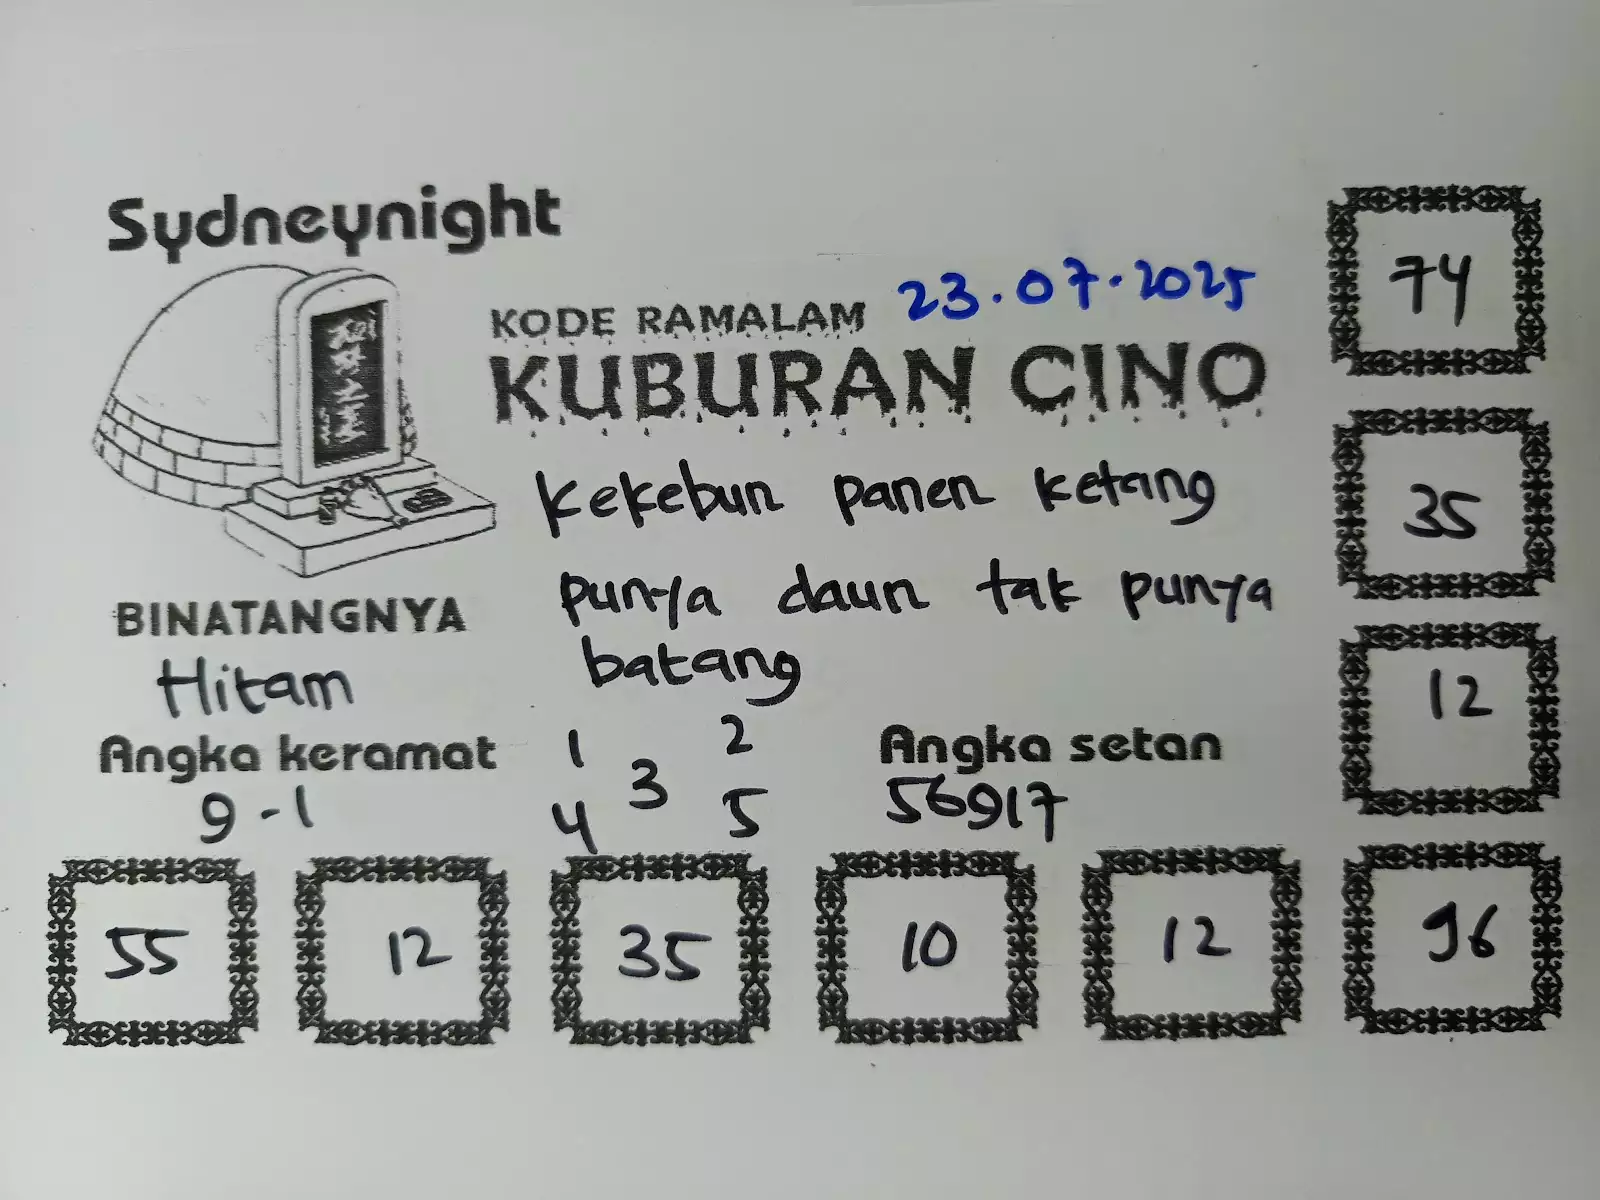 Sydneynight
KODE RAMALAM 23.07.2025
KUBURAN CINO
Kekebun panen ketang
punya daun tak punya
batang
BINATANGNYA
Hitam
Angka keramat
9-1
1 2
3
4 5
Angka setan
56917
74
35
12
55 12 35 10 12 96